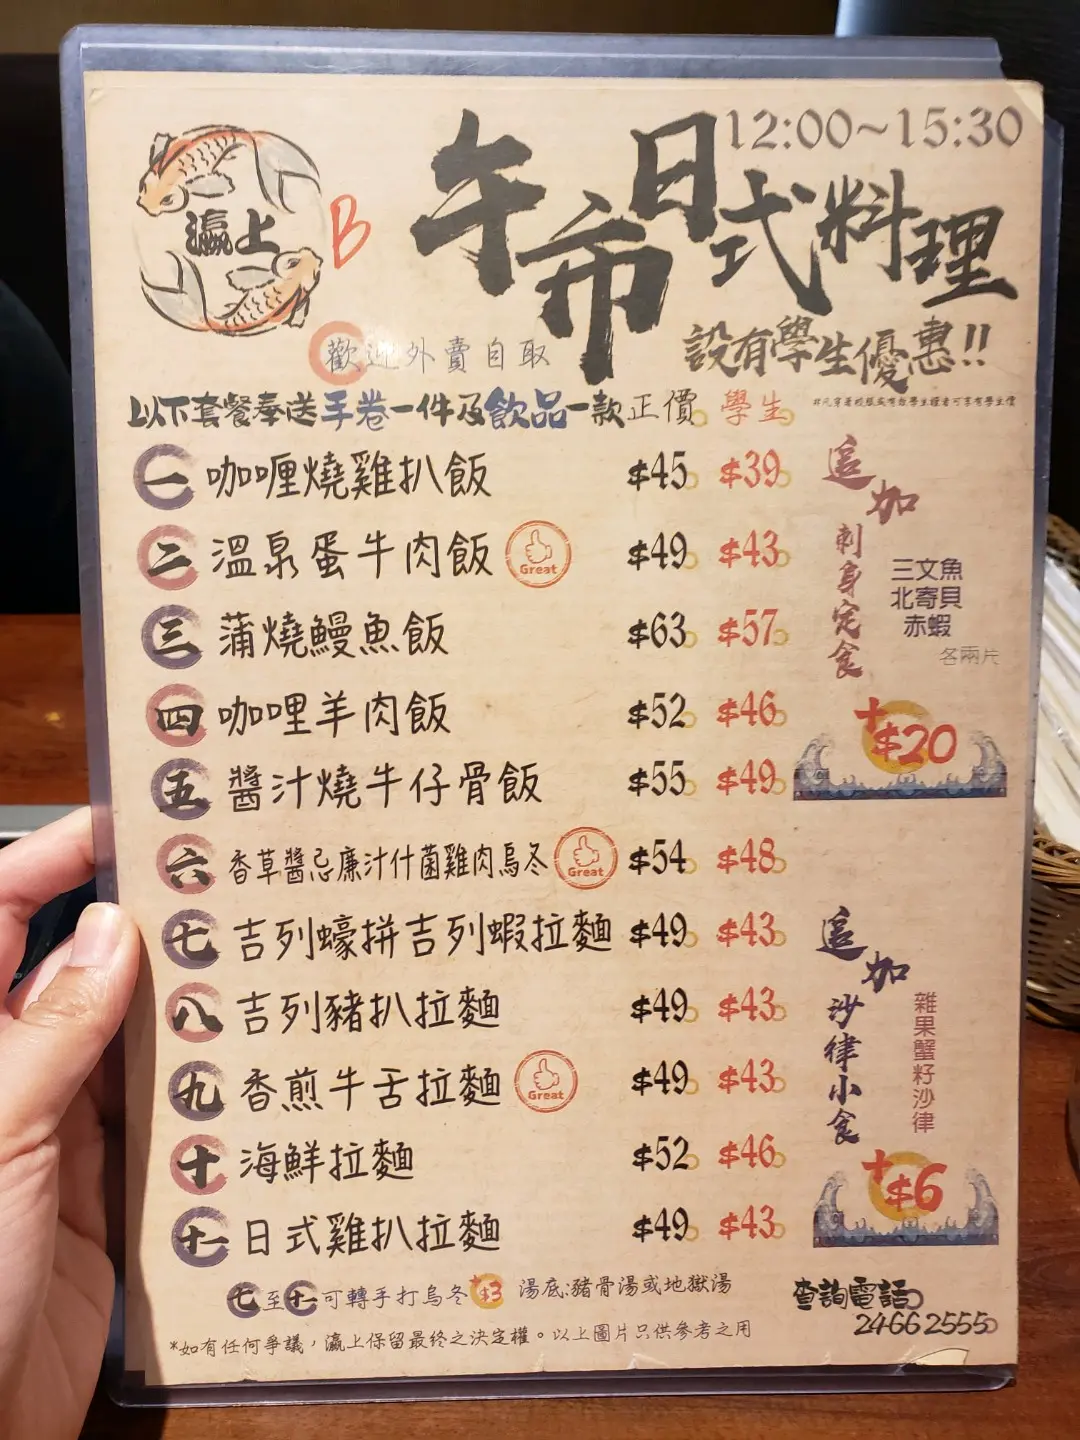 12:00~15:30
瀛上
B
午市日式料理
歡迎外賣自取
設有學生優惠!!
以下套餐奉送手卷一件及飲品一款 正價 學生
一 咖喱燒雞扒飯 $45 $39
二 溫泉蛋牛肉飯 Great $49 $43
三 蒲燒鰻魚飯 $63 $57
四 咖哩羊肉飯 $52 $46
五 醬汁燒牛仔骨飯 $55 $49
六 香草醬忌廉汁什菌雞肉烏冬 Great $54 $48
七 吉列蠔拼吉列蝦拉麵 $49 $43
八 吉列豬扒拉麵 $49 $43
九 香煎牛舌拉麵 Great $49 $43
十 海鮮拉麵 $52 $46
十一 日式雞扒拉麵 $49 $43
追加
刺身定食
三文魚
北寄貝
赤蝦
各兩片
+$20
追加
沙律小食
雜果蟹籽沙律
+$6
七至十一可轉手打烏冬+$3 湯底:豬骨湯或地獄湯
*如有任何爭議，瀛上保留最終之決定權。以上圖片只供參考之用
查詢電話
24662555